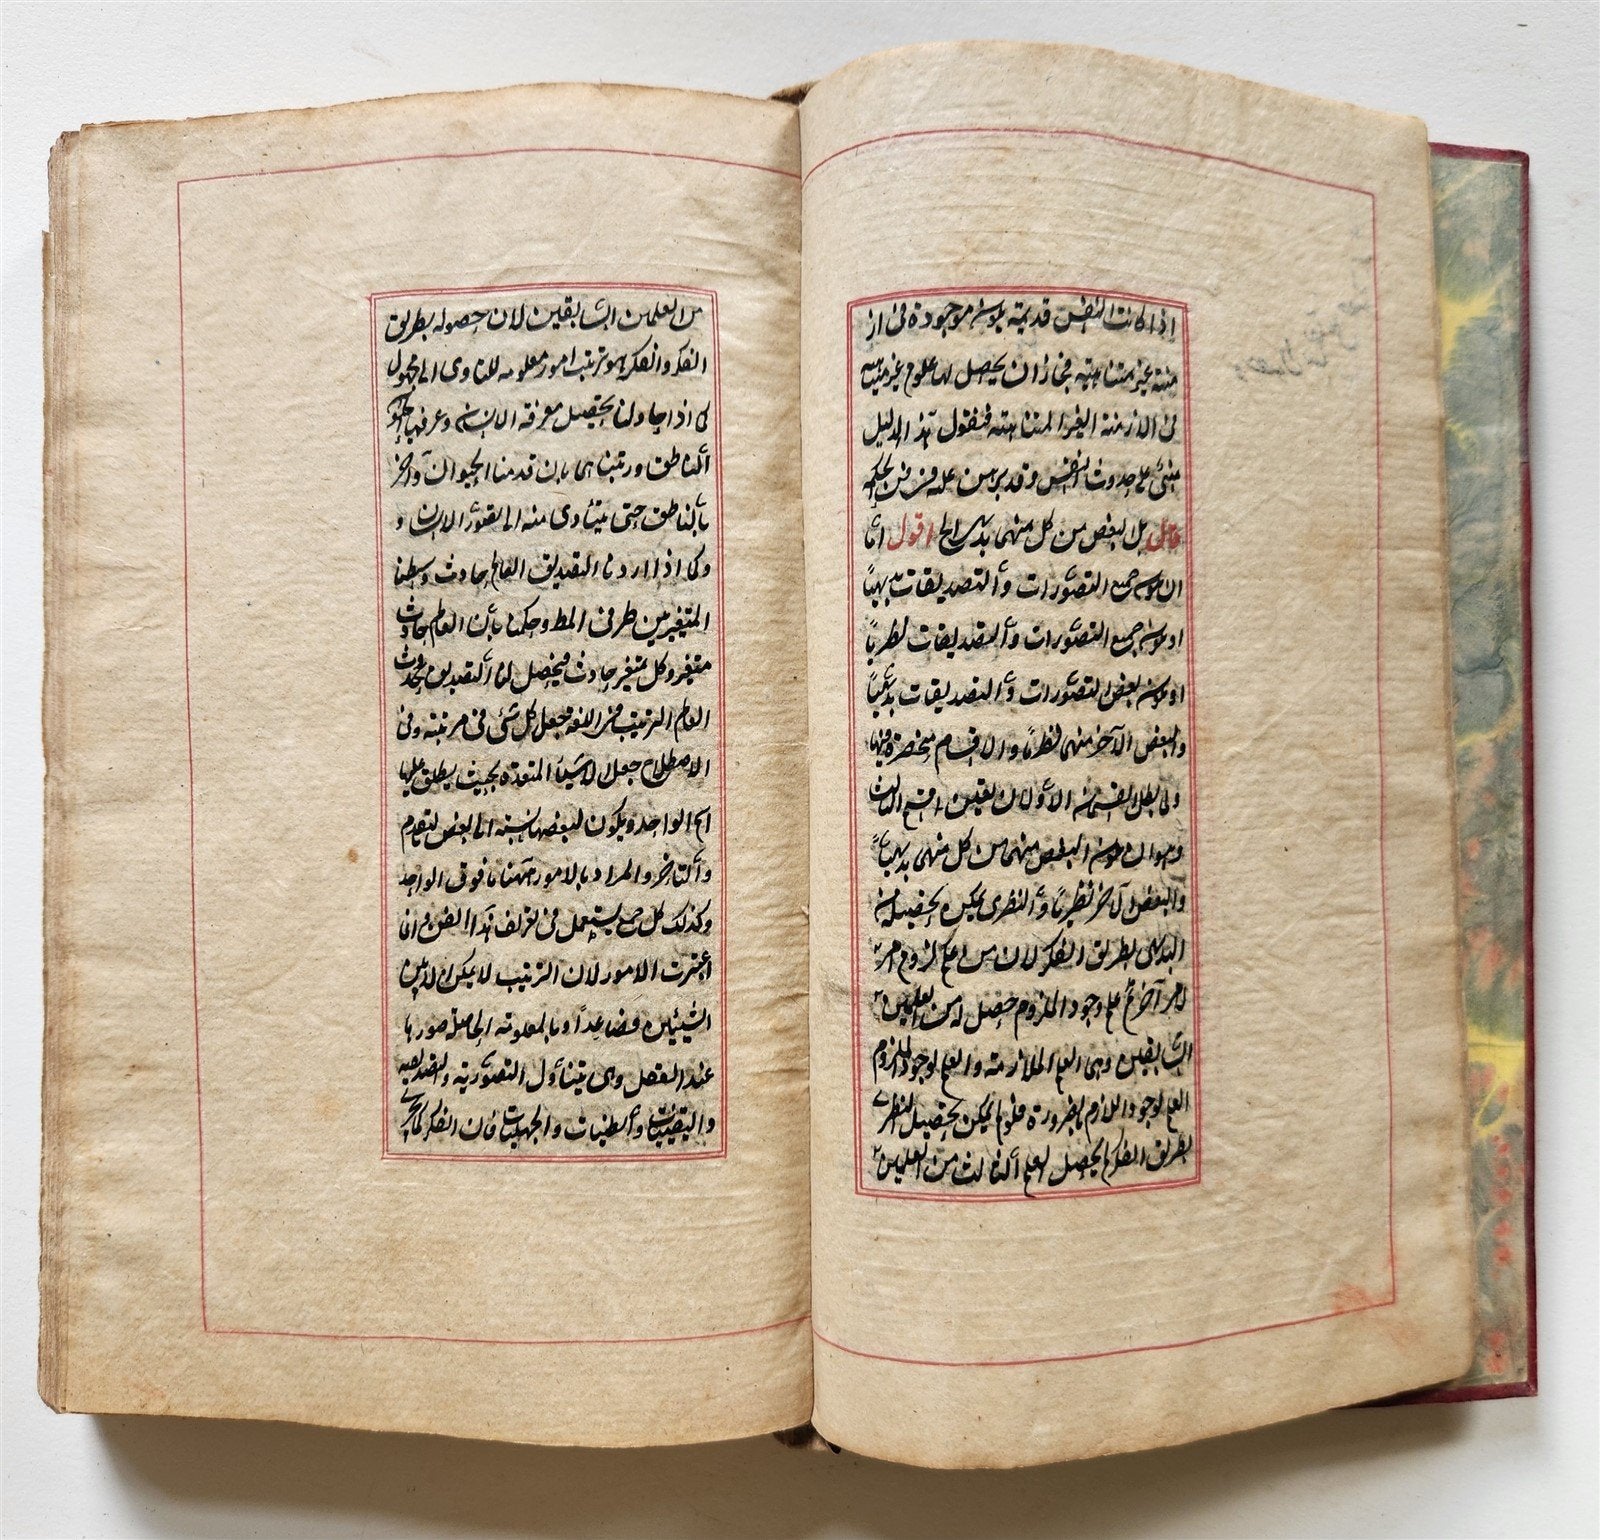 اذا كانت النفس قديمة يكون موجودة فى از
منة غير متناهية فجاز ان يحصل لها علوم غير متناهية
فى الازمنة الغير المتناهية فنقول هذا الدليل
مبنى على حدوث النفس وقد برهن عليه فى فن الحكمة
قال بل البعض من كل منهما بديهى الخ اقول اما
ان يكون جميع التصورات والتصديقات بديهيا
او يكون جميع التصورات والتصديقات نظريا
او يكون بعض التصورات والتصديقات بديهيا
والبعض الآخر منهما نظريا والاقسام منحصرة فيها
ولما بطل القسمان الأولان تعين القسم الثالث
وهو ان يكون البعض منهما من كل منهما بديهيا
والبعض الآخر نظريا والنظرى يمكن تحصيله من
البديهى بطريق الفكر لان من علم لزوم امر
لامر آخر ثم علم وجود الملزوم حصل له من العلمين
السابقين وهى العلم الملازمة والعلم بوجود الملزوم
العلم بوجود اللازم بالضرورة فلو لم يمكن تحصيل النظرى
بطريق الفكر لم يحصل العلم الثالث من العلمين
من العلمين السابقين لان حصوله بطريق
الفكر والفكر هو ترتيب امور معلومه للتاوى الى مجهول
كما اذا حاولنا تحصيل معرفة الانسان وعرفنا
الناطق ورتبناهما بان قدمنا الحيوان واخر
بالناطق حتى يتادى منه الى تصور الانسان و
وكما اذا اردنا التصديق العالم حادث وسطنا
المتغير بين طرفى المط وحكمنا بأن العالم حادث
متغير وكل متغير حادث فيحصل لنا التصديق بحدوث
العالم الترتيب فى اللغة جعل كل شئ فى مرتبته وفى
الاصطلاح جعل الاشياء المتعددة بحيث يطلق عليها
اسم الواحد ويكون لبعضها نسبة الى بعض بالتقدم
والتاخر والمراد بالامور ههنا ما فوق الواحد
وكذلك كل جمع يستعمل فى تعريف هذا الفن وانما
اعتبرت الامور لان الترتيب لا يمكن الا بين
الشيئين فصاعدا وبالمعلومة الحاصلة صورها
عند العقل وهى يتناول التصورية والتصديقية
واليقينيات والظنيات والجهليات فان الفكر كما يجرى